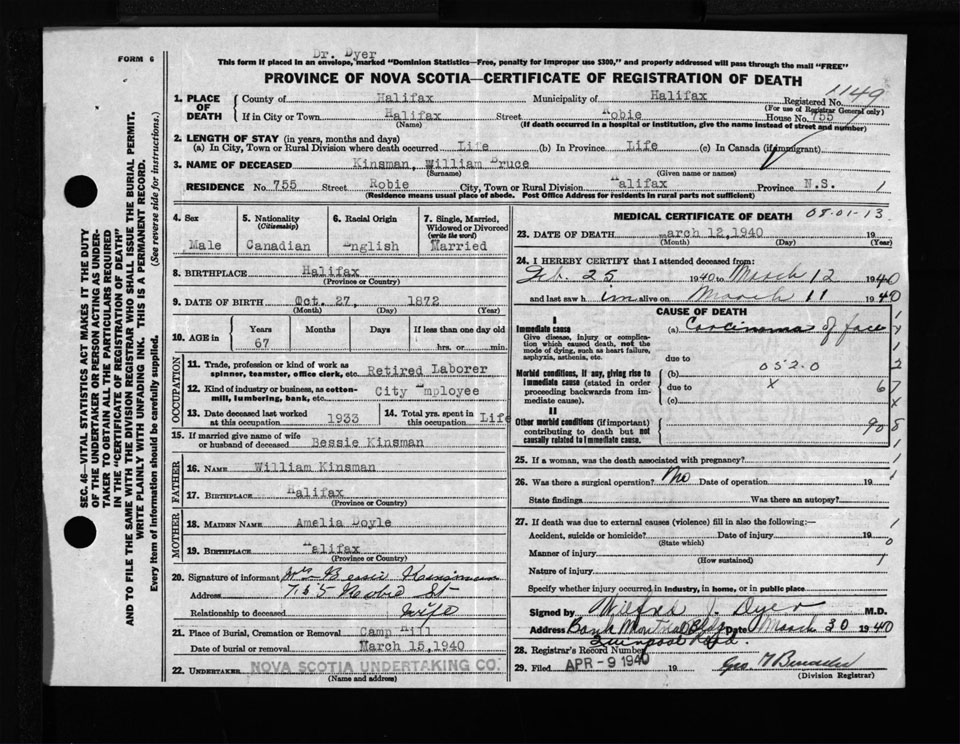 Dr. Dyer
FORM 6
This form if placed in an envelope, marked "Dominion Statistics—Free, penalty for improper use $300," and properly addressed will pass through the mail "FREE"
PROVINCE OF NOVA SCOTIA—CERTIFICATE OF REGISTRATION OF DEATH
1149
1. PLACE OF DEATH
County of Halifax Municipality of Halifax Registered No.
(For use of Registrar General only)
If in City or Town Halifax Street Robie House No. 755
(Name) (If death occurred in a hospital or institution, give the name instead of street and number)
2. LENGTH OF STAY (in years, months and days)
(a) In City, Town or Rural Division where death occurred Life (b) In Province Life (c) In Canada (if immigrant)
3. NAME OF DECEASED Kinsman, William Bruce
(Surname) (Given name or names)
RESIDENCE No. 755 Street Robie City, Town or Rural Division Halifax Province N.S. 1
(Residence means usual place of abode. Post Office Address for residents in rural parts not sufficient)
4. Sex Male
5. Nationality (Citizenship) Canadian
6. Racial Origin English
7. Single, Married, Widowed or Divorced (write the word) Married
8. BIRTHPLACE Halifax
(Province or Country)
9. DATE OF BIRTH Oct. 27, 1872
(Month) (Day) (Year)
10. AGE in Years 67 Months Days If less than one day old hrs. or min.
OCCUPATION
11. Trade, profession or kind of work as spinner, teamster, office clerk, etc. Retired Laborer
12. Kind of industry or business, as cotton-mill, lumbering, bank, etc. City Employee
13. Date deceased last worked at this occupation 1933
14. Total yrs. spent in this occupation Life
15. If married give name of wife or husband of deceased Bessie Kinsman
FATHER
16. NAME William Kinsman
17. BIRTHPLACE Halifax
(Province or Country)
MOTHER
18. MAIDEN NAME Amelia Doyle
19. BIRTHPLACE Halifax
(Province or Country)
20. Signature of informant Mrs Bessie Kinsman
Address 755 Robie St
Relationship to deceased Wife
21. Place of Burial, Cremation or Removal Camp Hill
Date of burial or removal March 15, 1940
22. UNDERTAKER NOVA SCOTIA UNDERTAKING CO.
(Name and address)
MEDICAL CERTIFICATE OF DEATH 08-01-13
23. DATE OF DEATH March 12, 1940 19
(Month) (Day) (Year)
24. I HEREBY CERTIFY that I attended deceased from:
Feb. 25 1940 to March 12 1940
and last saw him alive on March 11 1940
CAUSE OF DEATH
I
Immediate cause (a) Carcinoma of face
Give disease, injury or complication which caused death, not the mode of dying, such as heart failure, asphyxia, asthenia, etc.
due to
Morbid conditions, if any, giving rise to immediate cause (stated in order proceeding backwards from immediate cause).
(b) 052.0
due to X 67
(c)
II
Other morbid conditions (if important) contributing to death but not causally related to immediate cause.
90
25. If a woman, was the death associated with pregnancy?
26. Was there a surgical operation? No Date of operation 19
State findings Was there an autopsy?
27. If death was due to external causes (violence) fill in also the following:—
Accident, suicide or homicide? Date of injury 19
(State which)
Manner of injury
(How sustained)
Nature of injury
Specify whether injury occurred in industry, in home, or in public place
Signed by Wilfrid J. Dyer M.D.
Address Bank Montreal Bldg Date March 30 1940
Quinpool Road
28. Registrar's Record Number
29. Filed APR - 9 1940 19
(Division Registrar)
SEC. 46—VITAL STATISTICS ACT MAKES IT THE DUTY
OF THE UNDERTAKER OR PERSON ACTING AS UNDER-
TAKER TO OBTAIN ALL THE PARTICULARS REQUIRED
IN THE "CERTIFICATE OF REGISTRATION OF DEATH"
AND TO FILE THE SAME WITH THE DIVISION REGISTRAR WHO SHALL ISSUE THE BURIAL PERMIT.
WRITE PLAINLY WITH UNFADING INK. THIS IS A PERMANENT RECORD.
Every item of Information should be carefully supplied. (See reverse side for instructions.)